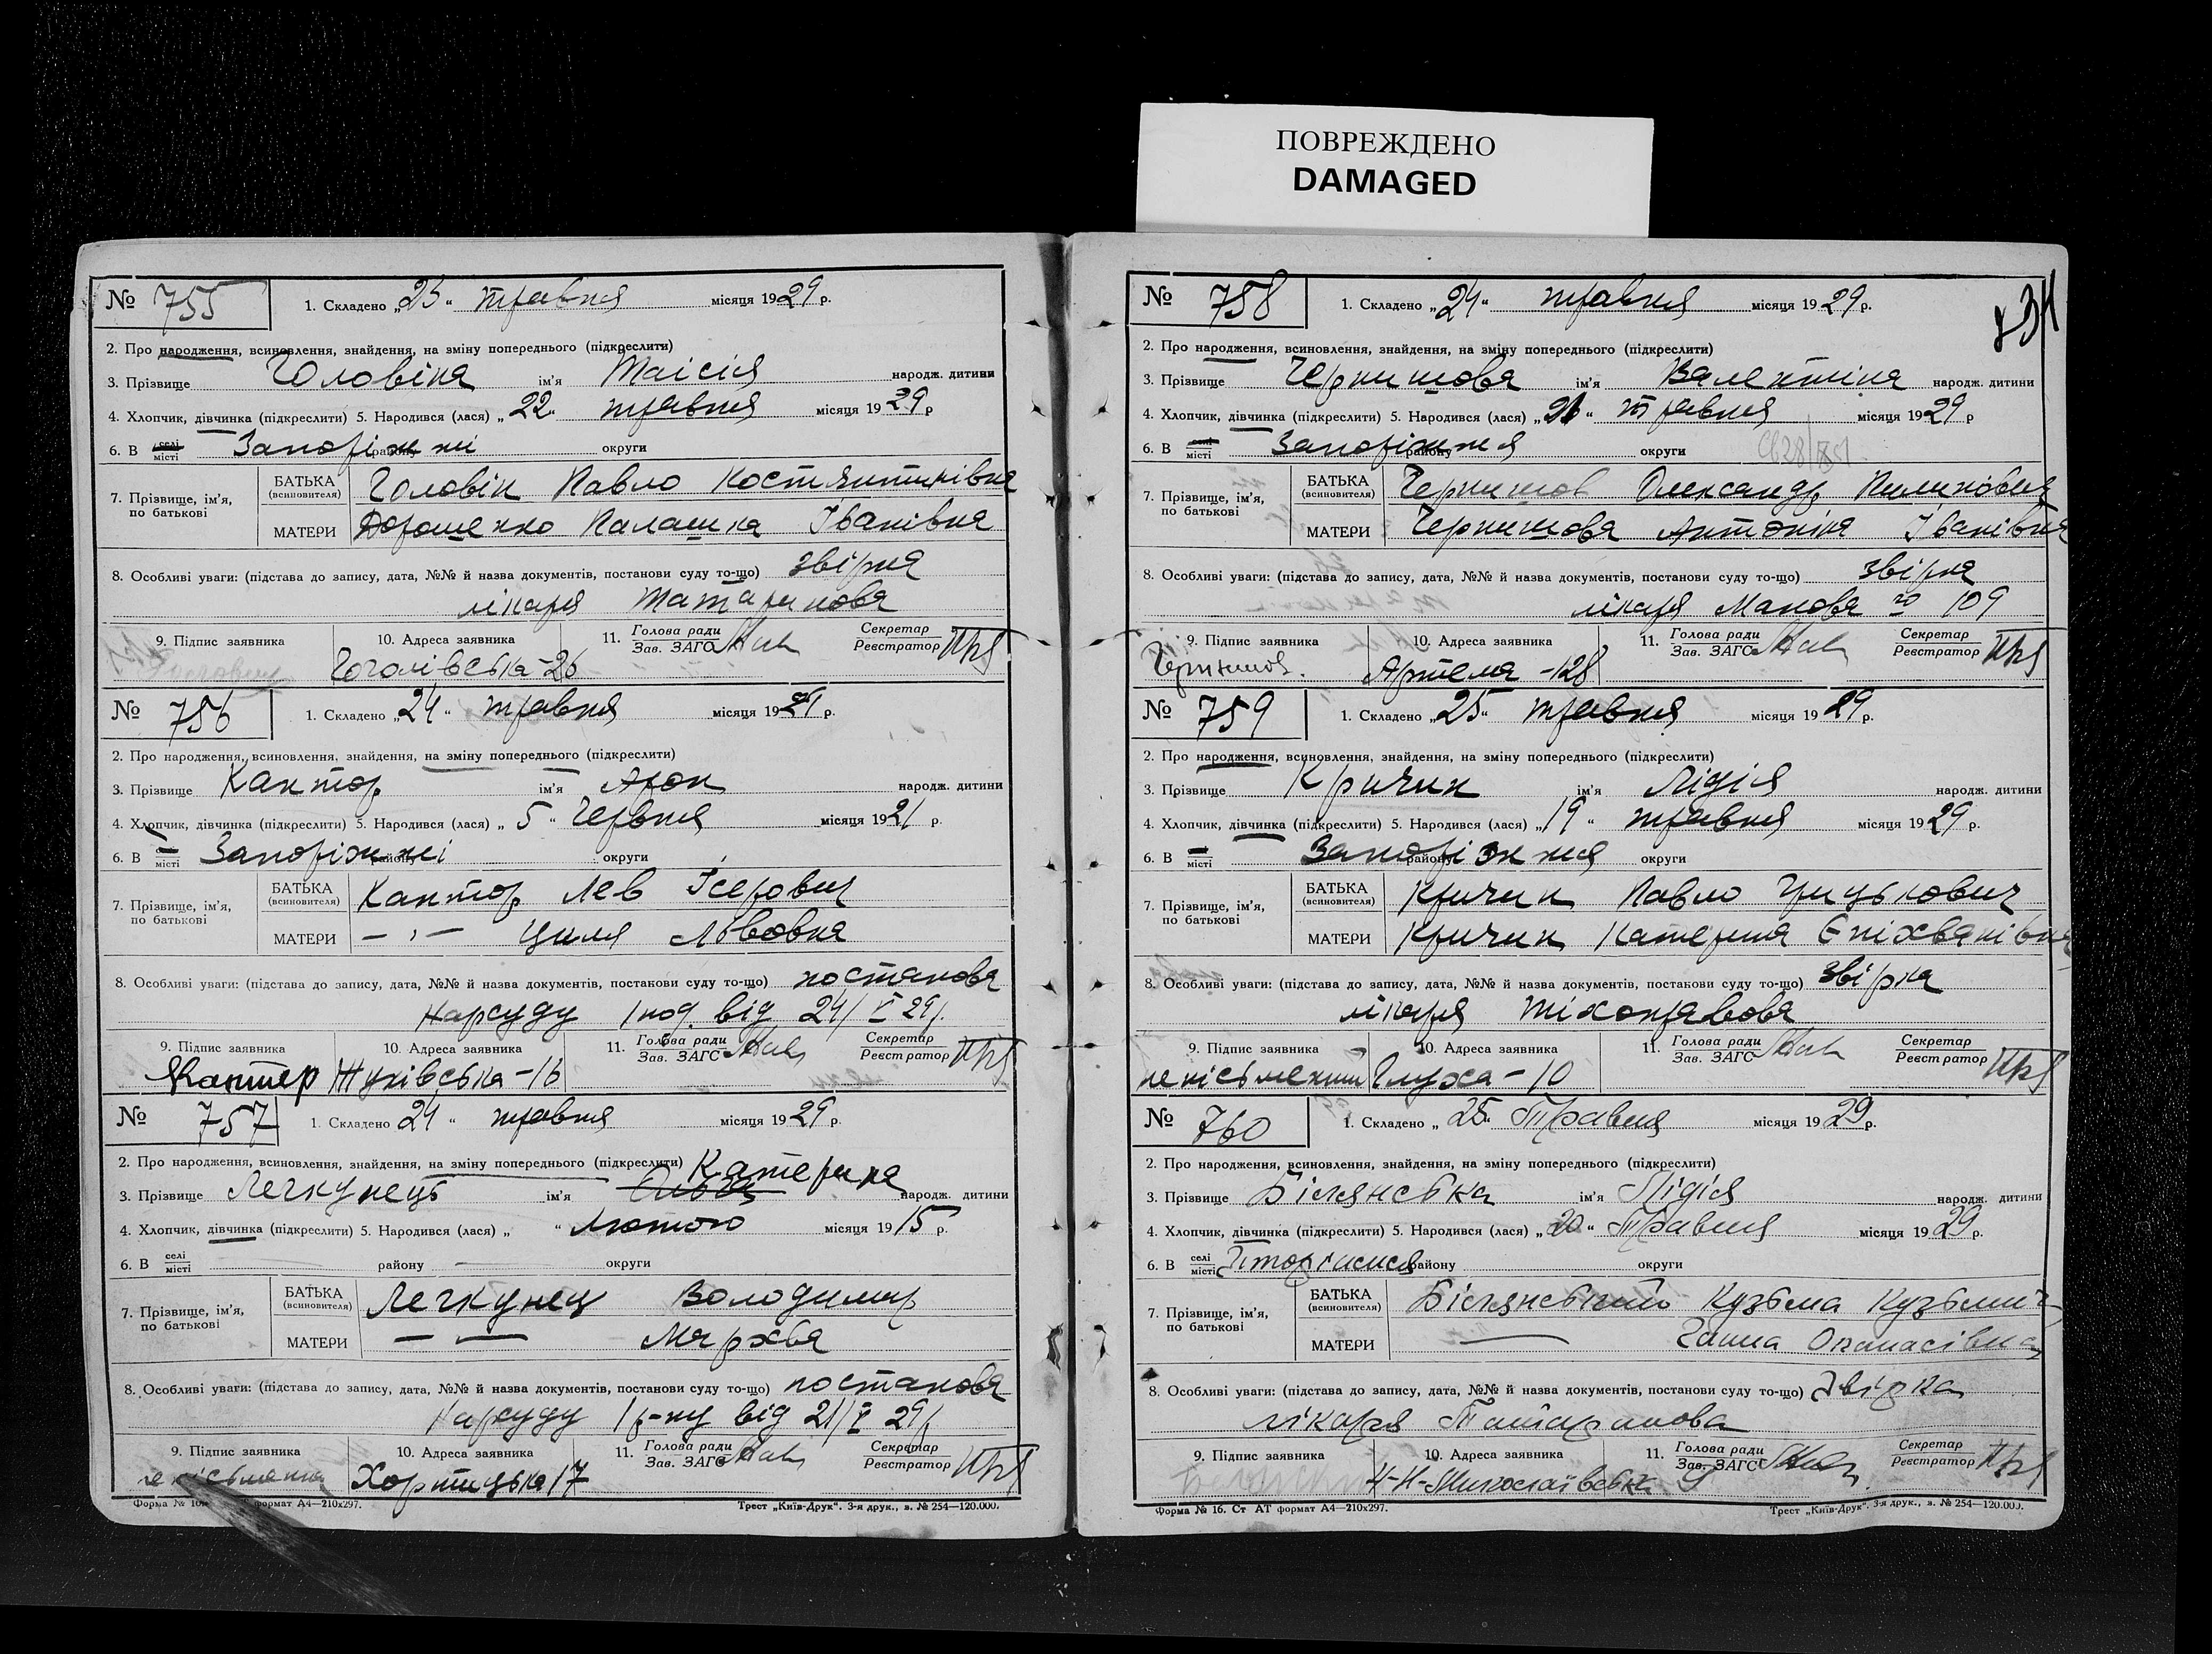 ПОВРЕЖДЕНО
DAMAGED
№ 755 1. Складено „23“ травня місяця 1929 р.
2. Про народження, всиновлення, знайдення, на зміну попереднього (підкреслити)
3. Прізвище Головіна ім'я Таісія народж. дитини
4. Хлопчик, дівчинка (підкреслити) 5. Народився (лася) „22“ травня місяця 1929 р
6. В селі місті Запоріжжі району округи
7. Прізвище, ім'я, по батькові БАТЬКА (всиновителя) Головін Павло Костянтинівна
МАТЕРИ Дорошенко Палашка Іванівна
8. Особливі уваги: (підстава до запису, дата, №№ й назва документів, постанови суду то-що) звірка
лікаря Татаринова
9. Підпис заявника 10. Адреса заявника 11. Голова ради Зав. ЗАГС Секретар Реєстратор
Гоголівська-26
№ 756 1. Складено „24“ травня місяця 1929 р.
2. Про народження, всиновлення, знайдення, на зміну попереднього (підкреслити)
3. Прізвище Кантор ім'я Арон народж. дитини
4. Хлопчик, дівчинка (підкреслити) 5. Народився (лася) „5“ Червня місяця 1921 р.
6. В місті Запоріжжі району округи
7. Прізвище, ім'я, по батькові БАТЬКА (всиновителя) Кантор Лев Ісерович
МАТЕРИ — „ — Циля Львовна
8. Особливі уваги: (підстава до запису, дата, №№ й назва документів, постанови суду то-що) постанова
Нарсуду від 24/V 29р.
9. Підпис заявника 10. Адреса заявника 11. Голова ради Зав. ЗАГС Секретар Реєстратор
Кантер Жуківська-16
№ 757 1. Складено 24 “ травня місяця 1929 р.
2. Про народження, всиновлення, знайдення, на зміну попереднього (підкреслити) Катерина
3. Прізвище Легкунець ім'я народж. дитини
4. Хлопчик, дівчинка (підкреслити) 5. Народився (лася) „ “ Лютого місяця 1915 р.
6. В селі місті району округи
7. Прізвище, ім'я, по батькові БАТЬКА (всиновителя) Легкунец Володимир
МАТЕРИ — — Мархва
8. Особливі уваги: (підстава до запису, дата, №№ й назва документів, постанови суду то-що) постанова
Нарсуду 1 р-ну від 21/V 29р.
9. Підпис заявника 10. Адреса заявника 11. Голова ради Зав. ЗАГС Секретар Реєстратор
Хортицька 17
Форма № 16. формат А4—210х297. Трест „Київ-Друк“. 3-я друк., з. № 254—120.000.
№ 758 1. Складено „24“ травня місяця 1929 р.
2. Про народження, всиновлення, знайдення, на зміну попереднього (підкреслити)
3. Прізвище Чернишова ім'я Валентіна народж. дитини
4. Хлопчик, дівчинка (підкреслити) 5. Народився (лася) „ “ травня місяця 1929 р
6. В селі місті Запоріжжя району округи
7. Прізвище, ім'я, по батькові БАТЬКА (всиновителя) Чернишов Олександр Пилипович
МАТЕРИ Чернишова Антоніна Іванівна
8. Особливі уваги: (підстава до запису, дата, №№ й назва документів, постанови суду то-що) звірка
лікаря Манова № 109
9. Підпис заявника 10. Адреса заявника 11. Голова ради Зав. ЗАГС Секретар Реєстратор
Чернишов. Артема-128
№ 759 1. Складено „25“ травня місяця 1929 р.
2. Про народження, всиновлення, знайдення, на зміну попереднього (підкреслити)
3. Прізвище Кричун ім'я Лідія народж. дитини
4. Хлопчик, дівчинка (підкреслити) 5. Народився (лася) „19“ травня місяця 1929 р.
6. В місті Запоріжжя району округи
7. Прізвище, ім'я, по батькові БАТЬКА (всиновителя) Кричун Павло Грицькович
МАТЕРИ Кричун Катерина Єпіхванівна
8. Особливі уваги: (підстава до запису, дата, №№ й назва документів, постанови суду то-що) звірка
лікаря Тіхонравова
9. Підпис заявника 10. Адреса заявника 11. Голова ради Зав. ЗАГС Секретар Реєстратор
Глуха-10
№ 760 1. Складено „25“ Травня місяця 1929 р.
2. Про народження, всиновлення, знайдення, на зміну попереднього (підкреслити)
3. Прізвище Білянська ім'я Лідія народж. дитини
4. Хлопчик, дівчинка (підкреслити) 5. Народився (лася) „20“ Травня місяця 1929 р.
6. В селі місті району округи
7. Прізвище, ім'я, по батькові БАТЬКА (всиновителя) Білянський Кузьма Кузьмич
МАТЕРИ — Ганна Опанасівна
8. Особливі уваги: (підстава до запису, дата, №№ й назва документів, постанови суду то-що) Звірка
лікаря Татаринова
9. Підпис заявника 10. Адреса заявника 11. Голова ради Зав. ЗАГС Секретар Реєстратор
Форма № 16. Ст АТ формат А4—210х297. Трест „Київ-Друк“. 3-я друк., з. № 254—120.000.